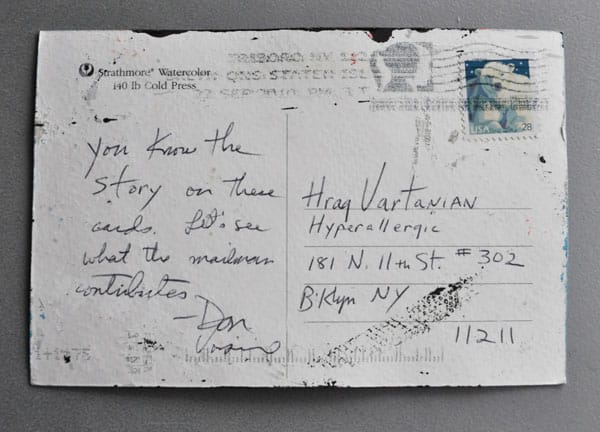 Strathmore® Watercolor
140 lb Cold Press
TRIBORO NY
QNS STATEN ISL
22 SEP 2010 PM
USA 28
you know the
story on these
cards. Let's see
what the mailman
contributes
—Don
Hrag Vartanian
Hyperallergic
181 N. 11th St. #302
B'klyn NY
11211